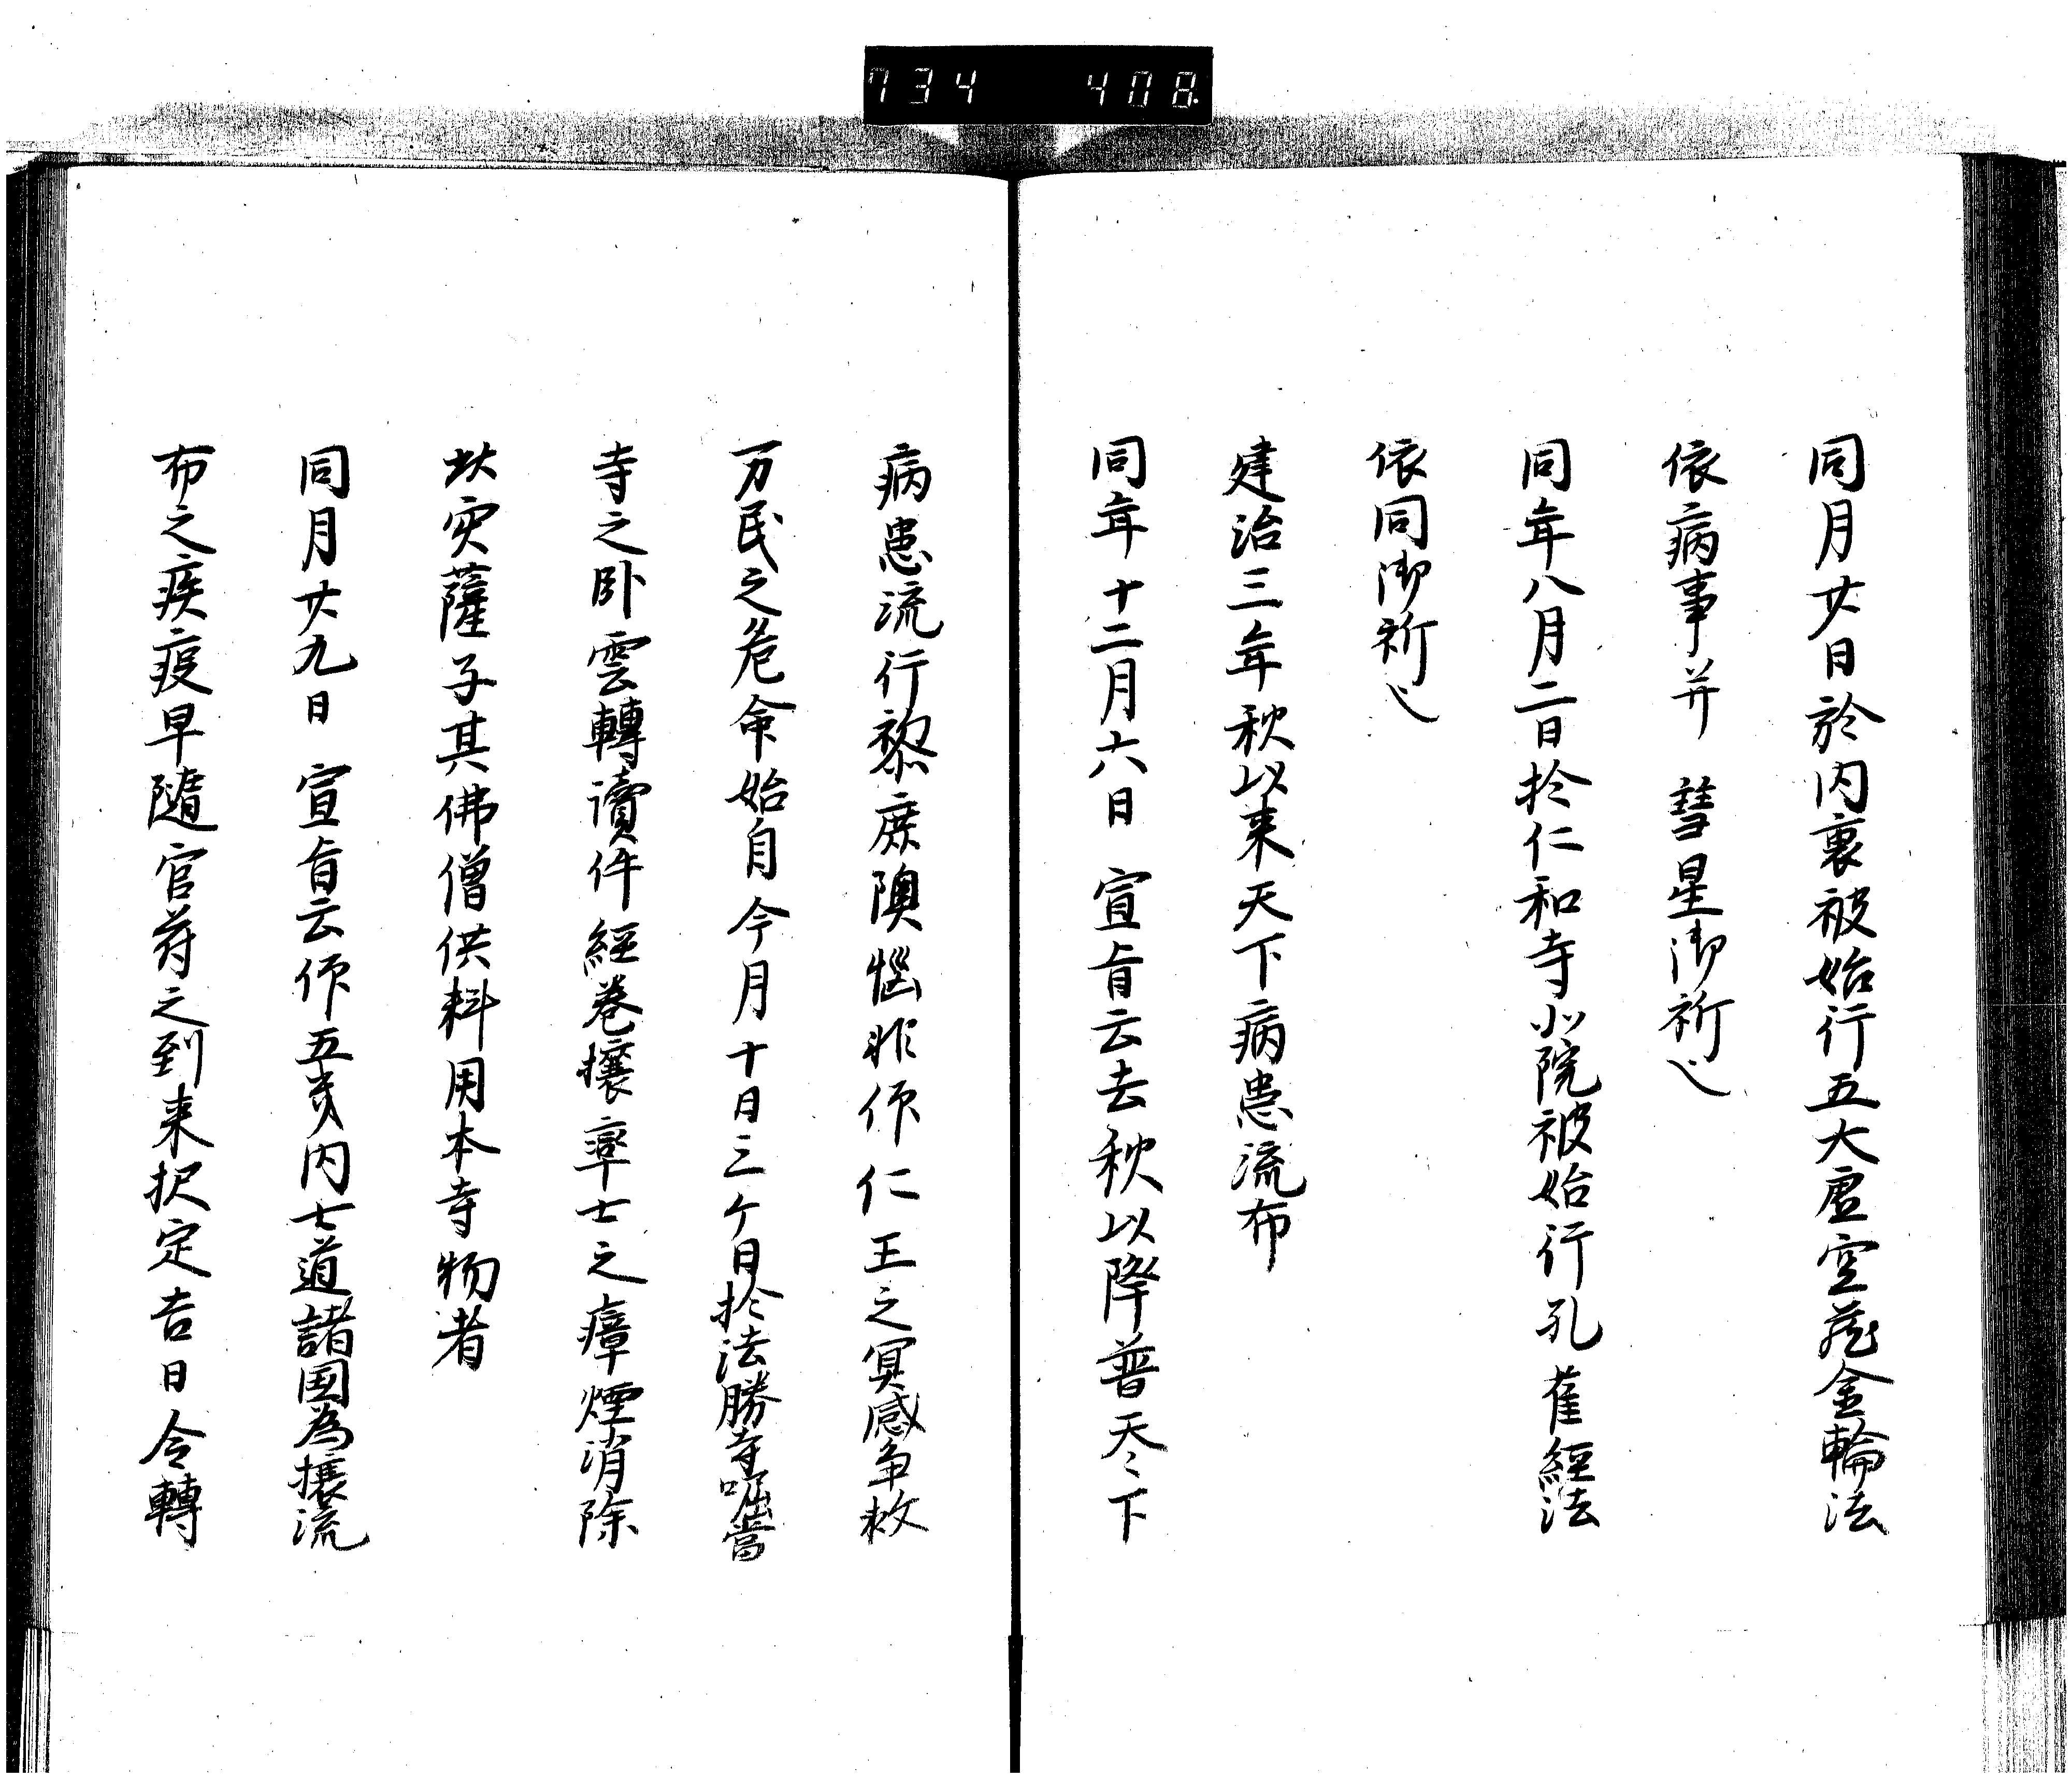 734 408
同月廿日於内裏被始行五大虚空蔵金輪法
依病事并 彗星御祈也
同年八月二日於仁和寺北院被始行孔雀経法
依同御祈也
建治三年秋以来天下病患流布
同年十二月六日 宣旨云去秋以降普天之下
病患流行黎庶懊悩非仰仁王之冥感争救
万民之危命始自今月十日三ケ日於法勝寺嘱当
寺之卧雲轉讀件經巻攘率土之瘴煙消除
災薩子其佛僧供料用本寺物者
同月廿九日 宣旨云仰五畿内七道諸国為攘流
布之疾疫早随官苻之到来択定吉日令轉